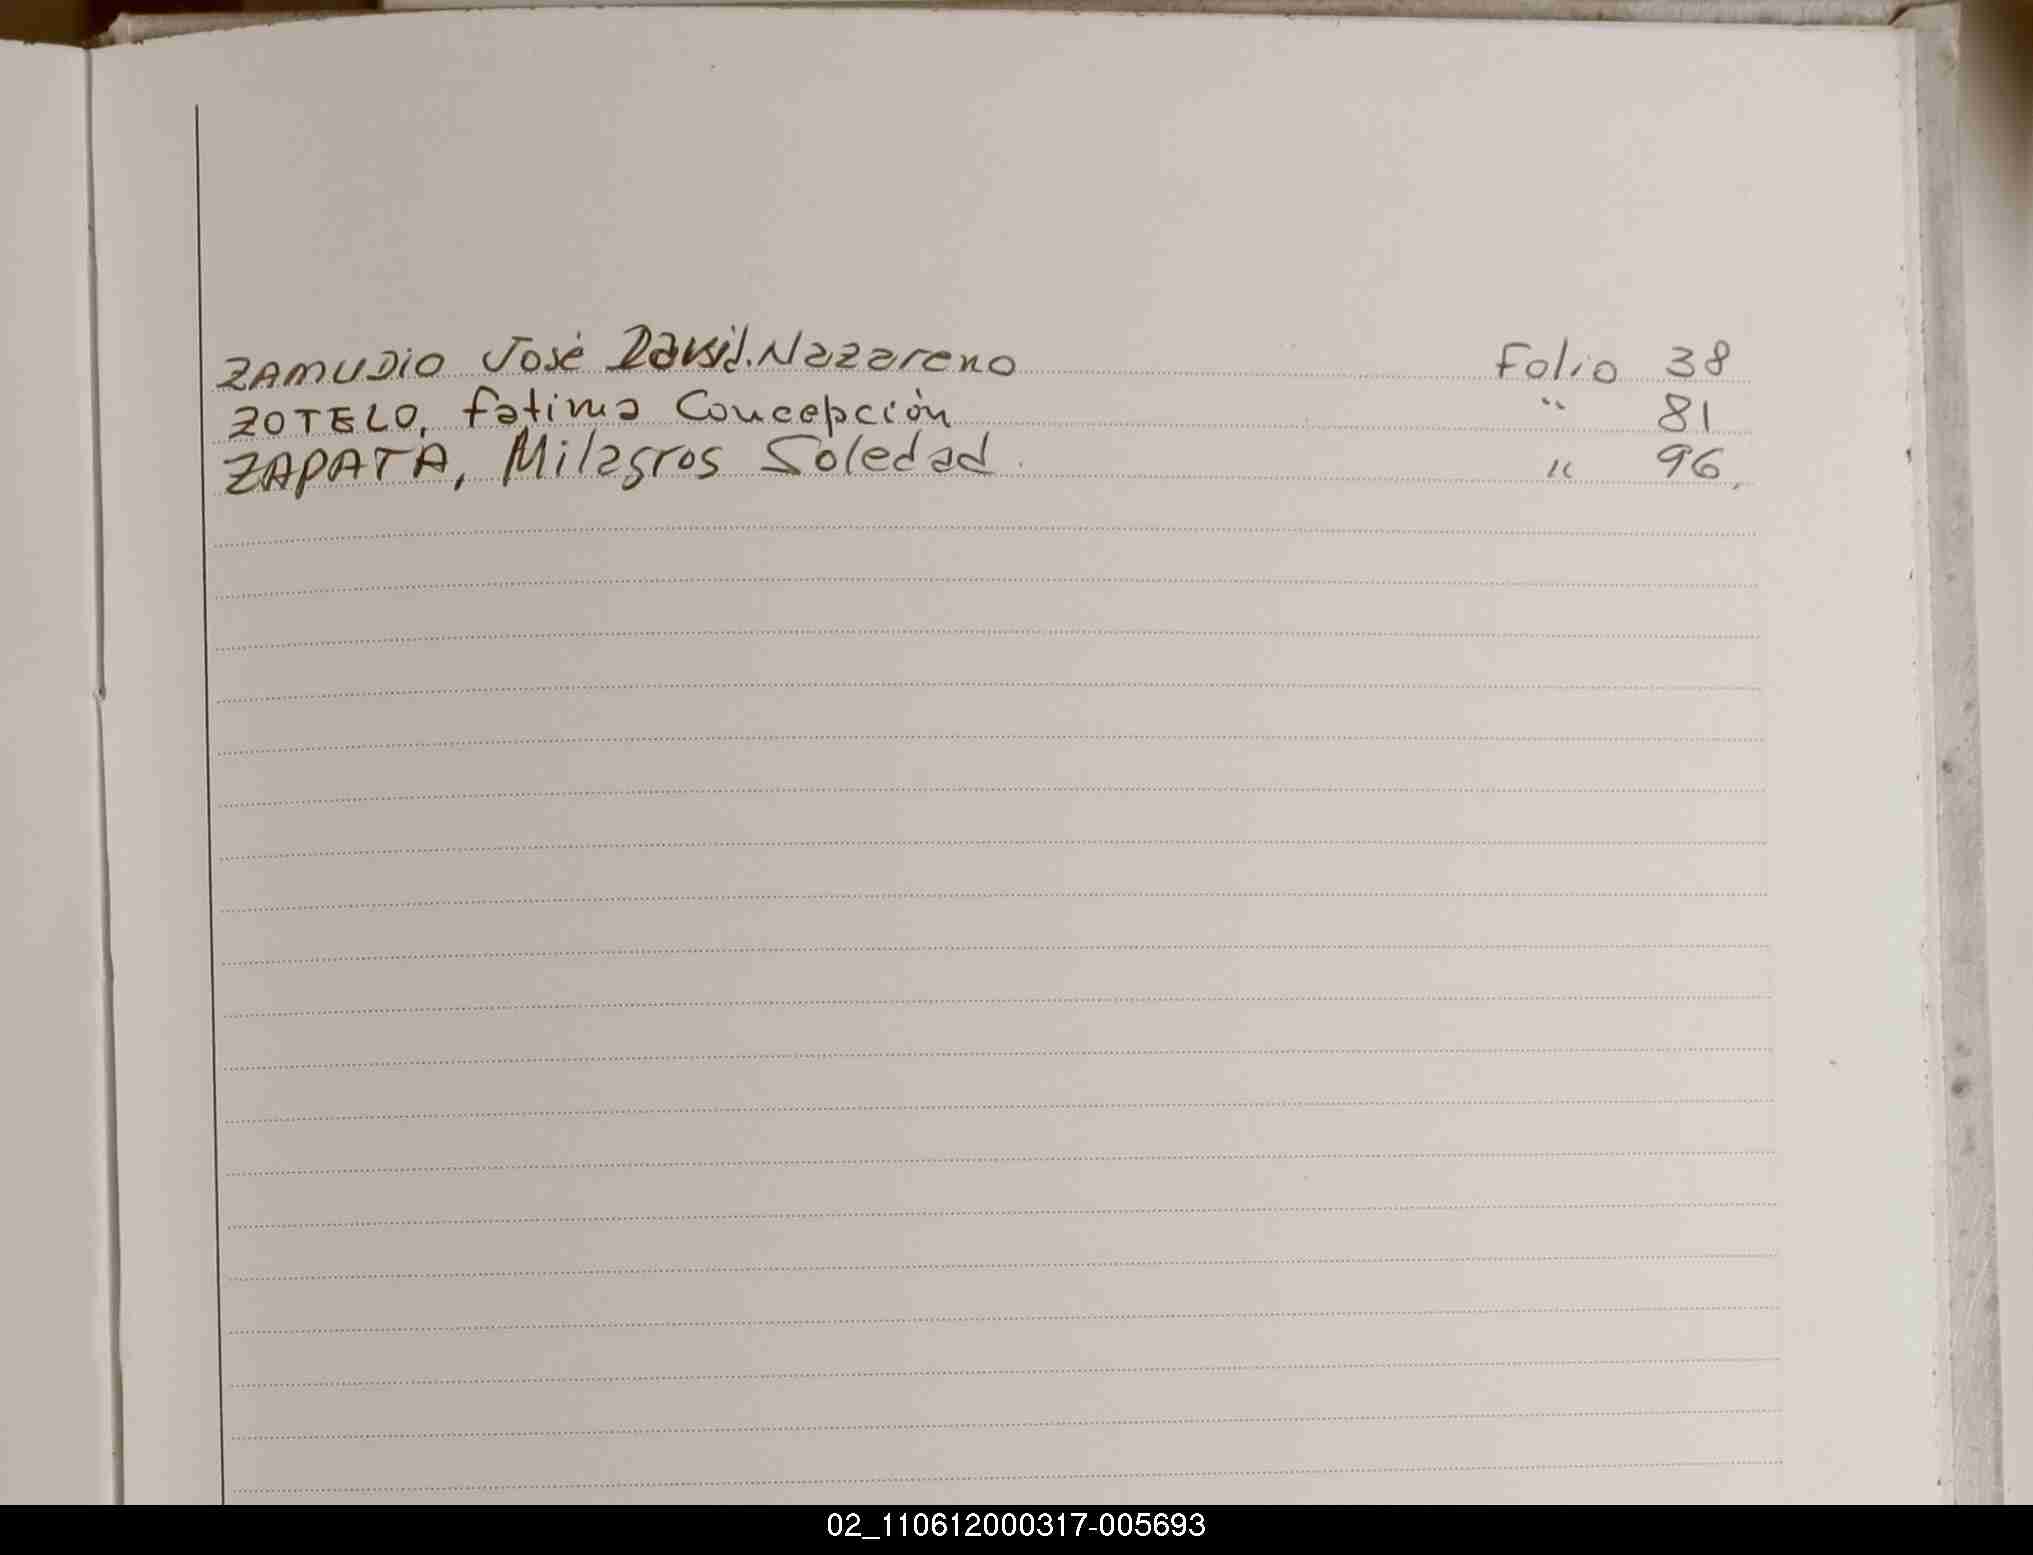 ZAMUDIO José David Nazareno Folio 38
ZOTELO, Fatima Concepción " 81
ZAPATA, Milagros Soledad " 96
02_110612000317-005693